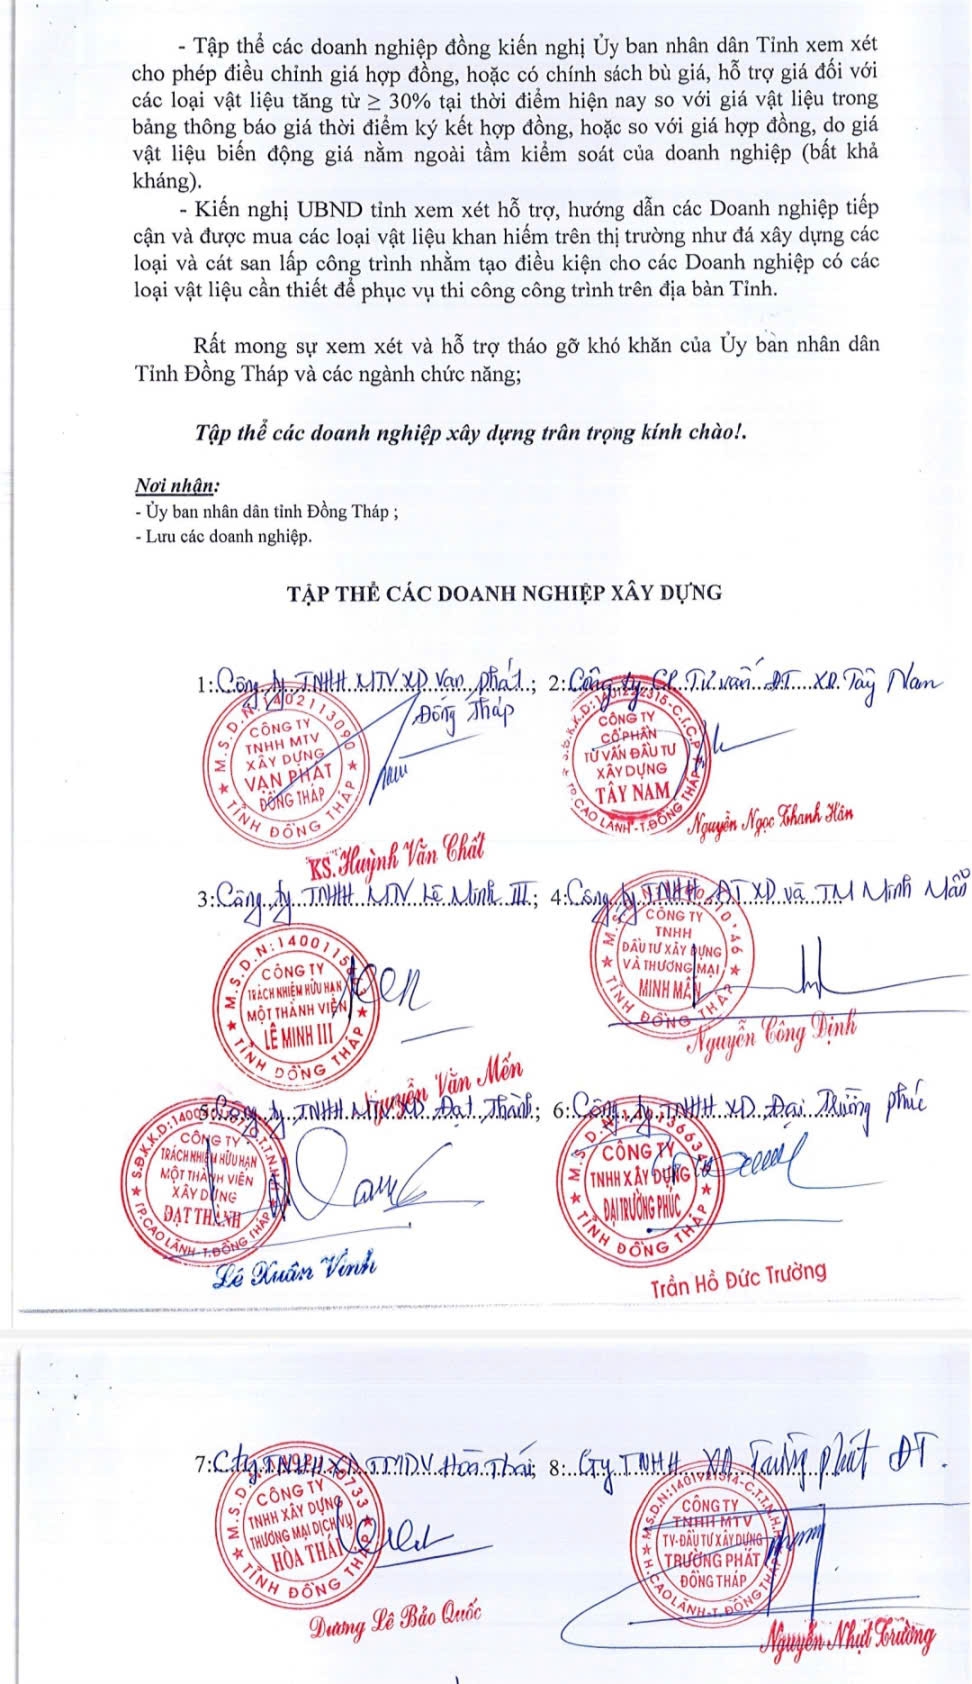 - Tập thể các doanh nghiệp đồng kiến nghị Ủy ban nhân dân Tỉnh xem xét
cho phép điều chỉnh giá hợp đồng, hoặc có chính sách bù giá, hỗ trợ giá đối với
các loại vật liệu tăng từ ≥ 30% tại thời điểm hiện nay so với giá vật liệu trong
bảng thông báo giá thời điểm ký kết hợp đồng, hoặc so với giá hợp đồng, do giá
vật liệu biến động giá nằm ngoài tầm kiểm soát của doanh nghiệp (bất khả
kháng).
- Kiến nghị UBND tỉnh xem xét hỗ trợ, hướng dẫn các Doanh nghiệp tiếp
cận và được mua các loại vật liệu khan hiếm trên thị trường như đá xây dựng các
loại và cát san lấp công trình nhằm tạo điều kiện cho các Doanh nghiệp có các
loại vật liệu cần thiết để phục vụ thi công công trình trên địa bàn Tỉnh.
Rất mong sự xem xét và hỗ trợ tháo gỡ khó khăn của Ủy bàn nhân dân
Tỉnh Đồng Tháp và các ngành chức năng;
Tập thể các doanh nghiệp xây dựng trân trọng kính chào!.
Nơi nhận:
- Ủy ban nhân dân tỉnh Đồng Tháp ;
- Lưu các doanh nghiệp.
TẬP THỂ CÁC DOANH NGHIỆP XÂY DỰNG
1: Công ty TNHH MTV XD Vạn phát ; 2: Công ty CP Tư vấn ĐT XD Tây Nam
Đồng Tháp
M.S.D.N:1402113090
CÔNG TY
TNHH MTV
XÂY DỰNG
VẠN PHÁT
ĐỒNG THÁP
TỈNH ĐỒNG THÁP
CÔNG TY
CỔ PHẦN
TƯ VẤN ĐẦU TƯ
XÂY DỰNG
TÂY NAM
TP.CAO LÃNH-T.ĐỒNG THÁP
KS. Huỳnh Văn Chất
Nguyễn Ngọc Thanh Hân
3: Công ty TNHH MTV Lê Minh III ; 4: Công ty TNHH ĐT XD và TM Minh Mẫn
CÔNG TY
TRÁCH NHIỆM HỮU HẠN
MỘT THÀNH VIÊN
LÊ MINH III
TỈNH ĐỒNG THÁP
CÔNG TY
TNHH
ĐẦU TƯ XÂY DỰNG
VÀ THƯƠNG MẠI
MINH MẪN
TỈNH ĐỒNG THÁP
Nguyễn Văn Mến
Nguyễn Công Định
5: Công ty TNHH MTV XD Đạt Thành ; 6: Công ty TNHH XD Đại Trường phúc
CÔNG TY
TRÁCH NHIỆM HỮU HẠN
MỘT THÀNH VIÊN
XÂY DỰNG
ĐẠT THÀNH
TP.CAO LÃNH-T.ĐỒNG THÁP
CÔNG TY
TNHH XÂY DỰNG
ĐẠI TRƯỜNG PHÚC
TỈNH ĐỒNG THÁP
Lê Xuân Vinh
Trần Hồ Đức Trường
7: Cty TNHH XD TMDV Hòa Thái ; 8: Cty TNHH XD Trường phát ĐT.
CÔNG TY
TNHH XÂY DỰNG
THƯƠNG MẠI DỊCH VỤ
HÒA THÁI
TỈNH ĐỒNG THÁP
CÔNG TY
TNHH MTV
TV-ĐẦU TƯ XÂY DỰNG
TRƯỜNG PHÁT
ĐỒNG THÁP
H.CAO LÃNH-T.ĐỒNG THÁP
Dương Lê Bảo Quốc
Nguyễn Nhựt Trường